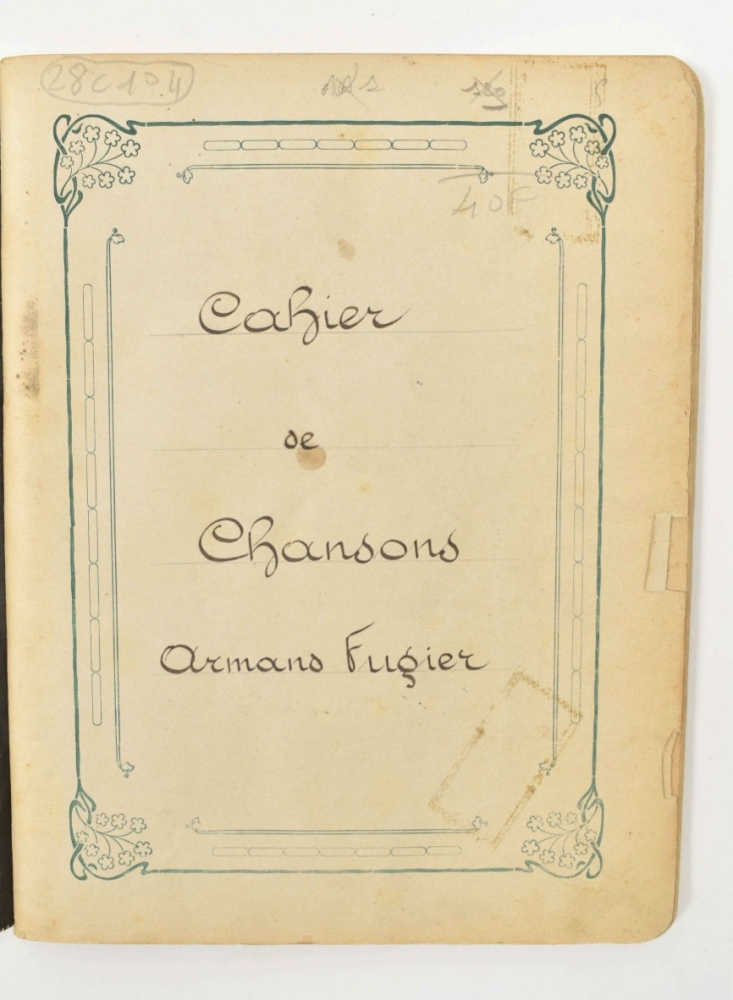 28C104
40F
Cahier
de
Chansons
Armand Fugier